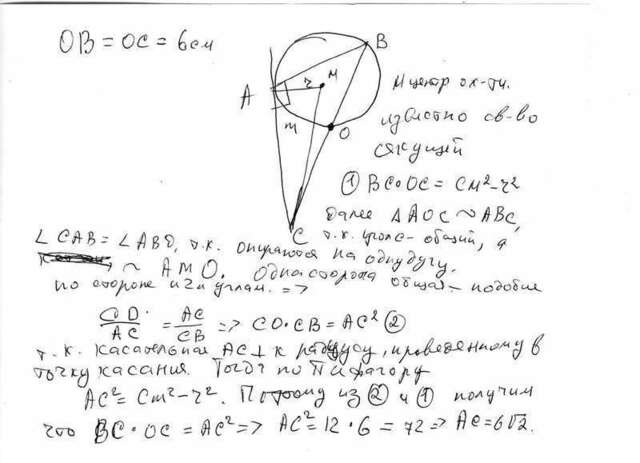 OB = OC = 6 см
B
A
r
M
m
O
C
M центр ок-ти.
известно св-во
секущей
① BC•OC = CM² - r²
далее △AOC ~ ABC,
т.к. угол C - общий, а
∠ CAB = ∠ ABO, т.к. опираются на одну дугу,
~ AmO. Одна сторона общая - подобие
по стороне и 2м углам. =>
CO / AC = AC / CB => CO•CB = AC² ②
т.к. касательная AC ⊥ к радиусу, проведенному в
точку касания. Тогда по Пифагору
AC² = CM² - r². Поэтому из ② и ① получим
что BC • OC = AC² => AC² = 12 • 6 = 72 => AC = 6√2.